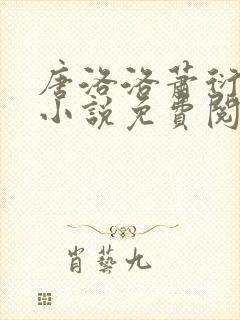 唐洛洛蕭衍
小說免費閱
肖藝九